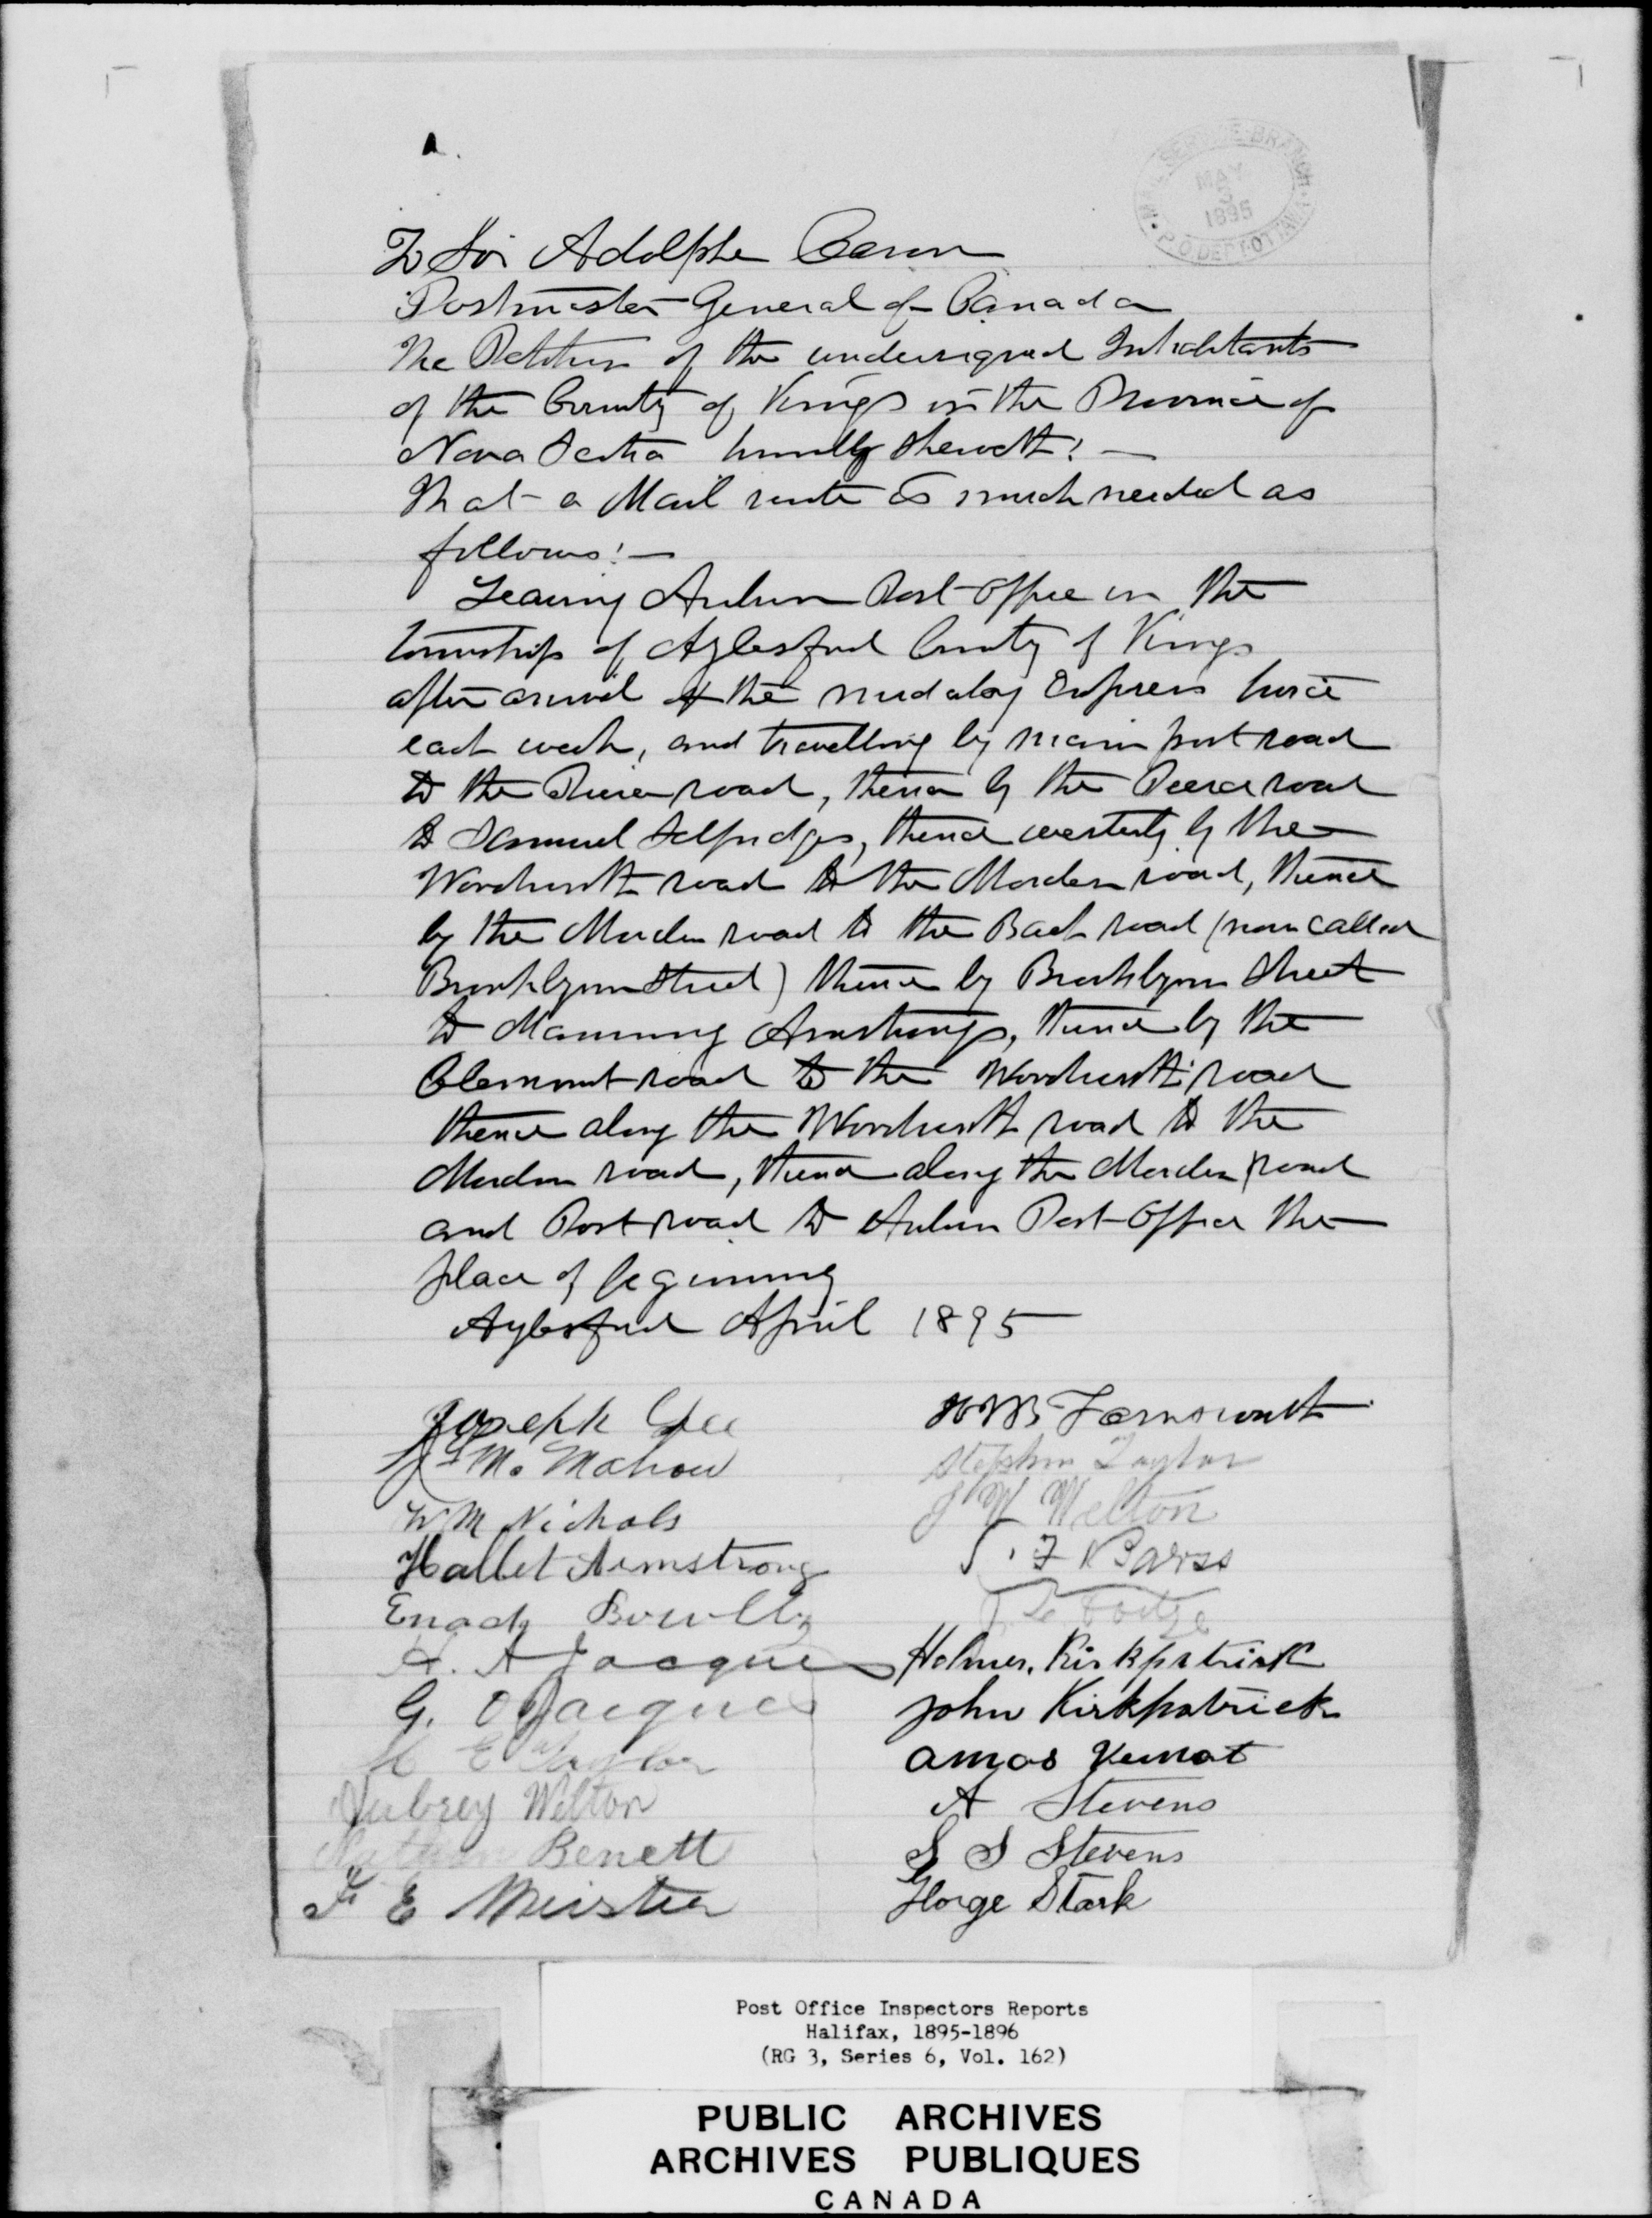 MAIL SERVICE BRANCH
MAY
3
1895
P.O. DEPT. OTTAWA
To Sir Adolphe Caron
Postmaster General of Canada
The Petition of the undersigned Inhabitants
of the County of Kings in the Province of
Nova Scotia humbly sheweth: —
That a Mail route is much needed as
follows: —
Leaving Auburn Post Office in the
township of Aylesford County of Kings
after arrival of the midday Express twice
each week, and travelling by main post road
to the Pierce road, thence by the Peerce road
to Samuel Selfridges, thence westerly by the
Wordworth road to the Morden road, thence
by the Morden road to the Back road (now called
Brooklynn Street) thence by Brooklynn Street
to Manning Armstrongs, thence by the
Clermont road to the Wordworth road
thence along the Wordworth road to the
Morden road, thence along the Morden road
and Post road to Auburn Post Office the
place of beginning
Aylesford April 1895
Joseph Gee
McMahow
Wm Nichols
Hallet Armstrong
Enoch Bowlby
H. A Jacques
G. O Jacques
E Taylor
Aubrey Welton
Nathan Benett
F E Meister
Farnsworth
Stephen Taylor
J W Welton
F Barss
Holmes. Kirkpatrick
John Kirkpatrick
Amos
A Stevens
S S Stevens
George Stark
Post Office Inspectors Reports
Halifax, 1895-1896
(RG 3, Series 6, Vol. 162)
PUBLIC ARCHIVES
ARCHIVES PUBLIQUES
CANADA